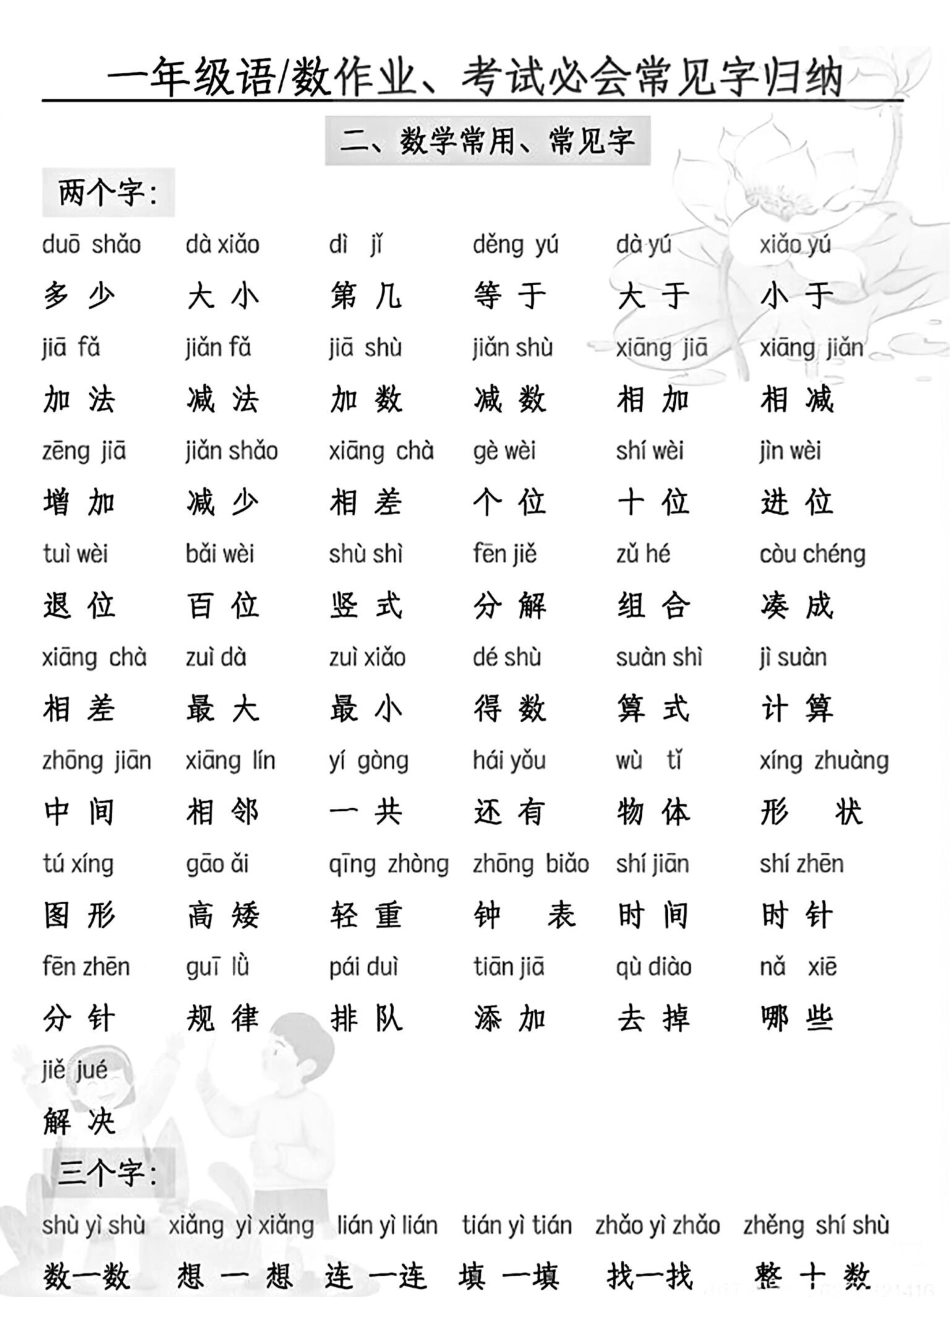 一年级语/数作业、考试必会常见字归纳
二、数学常用、常见字
两个字：
duō shǎo dà xiǎo dì jǐ děng yú dà yú xiǎo yú
多 少 大 小 第 几 等 于 大 于 小 于
jiā fǎ jiǎn fǎ jiā shù jiǎn shù xiāng jiā xiāng jiǎn
加 法 减 法 加 数 减 数 相 加 相 减
zēng jiā jiǎn shǎo xiāng chà gè wèi shí wèi jìn wèi
增 加 减 少 相 差 个 位 十 位 进 位
tuì wèi bǎi wèi shù shì fēn jiě zǔ hé còu chéng
退 位 百 位 竖 式 分 解 组 合 凑 成
xiāng chà zuì dà zuì xiǎo dé shù suàn shì jì suàn
相 差 最 大 最 小 得 数 算 式 计 算
zhōng jiān xiāng lín yí gòng hái yǒu wù tǐ xíng zhuàng
中 间 相 邻 一 共 还 有 物 体 形 状
tú xíng gāo ǎi qīng zhòng zhōng biǎo shí jiān shí zhēn
图 形 高 矮 轻 重 钟 表 时 间 时 针
fēn zhēn guī lǜ pái duì tiān jiā qù diào nǎ xiē
分 针 规 律 排 队 添 加 去 掉 哪 些
jiě jué
解 决
三个字：
shù yì shù xiǎng yì xiǎng lián yì lián tián yì tián zhǎo yì zhǎo zhěng shí shù
数一数 想 一 想 连 一连 填 一填 找一找 整 十 数